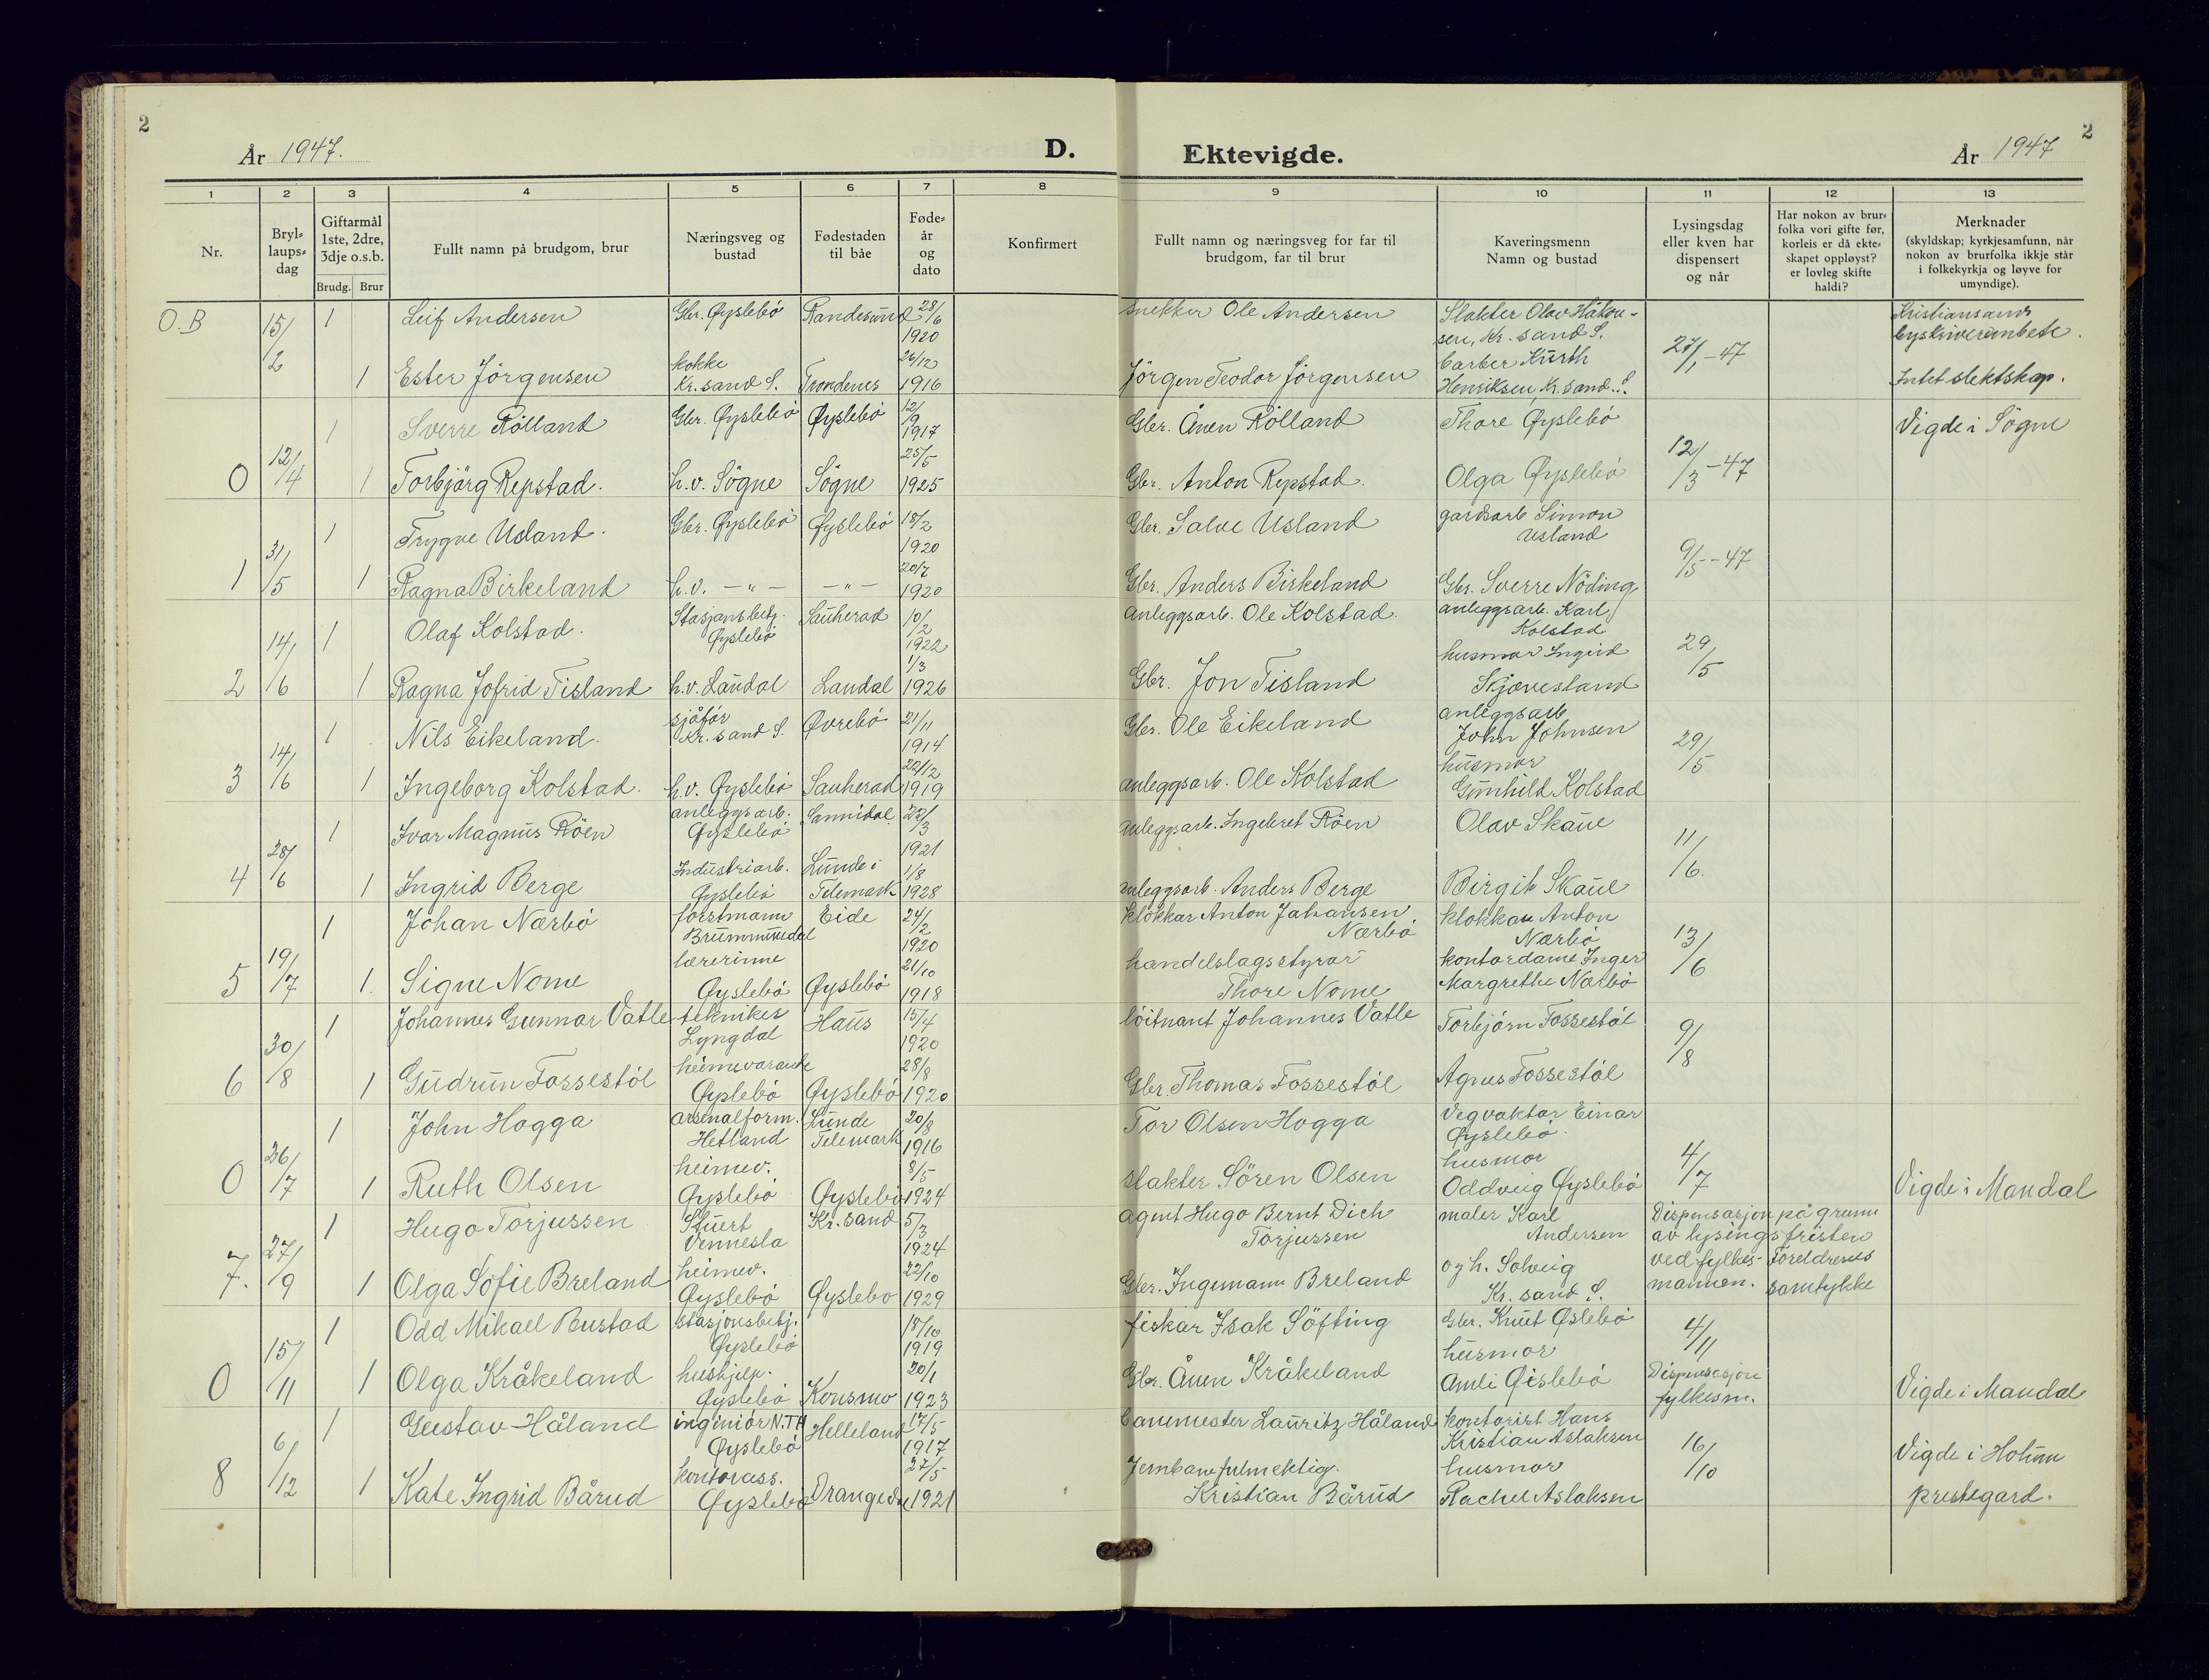 2
År 1947.
D.
Ektevigde.
År 1947
2
1 2 3 4 5 6 7 8 9 10 11 12 13
Nr.
Bryl=
laups=
dag
Giftarmål
1ste, 2dre,
3dje o.s.b.
Brudg. Brur
Fullt namn på brudgom, brur
Næringsveg og
bustad
Fødestaden
til båe
Føde=
år
og
dato
Konfirmert
Fullt namn og næringsveg for far til
brudgom, far til brur
Kaveringsmenn
Namn og bustad
Lysingsdag
eller kven har
dispensert
og når
Har nokon av brur=
folka vori gifte før,
korleis er då ekte=
skapet oppløyst?
er lovleg skifte
haldi?
Merknader
(skyldskap; kyrkjesamfunn, når
nokon av brurfolka ikkje står
i folkekyrkja og løyve for
umyndige).
O.B 15/2 1 Leif Andersen Gbr. Øyslebö Randesund 28/6 1920 Snekker Ole Andersen Slakter Olav Håkon-
sen, Kr. sand S. 27/1-47 Kristiansands
byskriverembete.
1 Ester Jörgensen kokke
Kr. sand S. Trondenes 26/12 1916 Jörgen Teodor Jörgensen barber Kurth
Henriksen Kr. sand S. Intet slektskap.
0 12/4 1 Sverre Rölland Gbr. Øyslebö Øyslebö 12/9 1917 Gbr. Ånen Rölland Thore Øyslebö 12/3-47 Vigde i Sögne
1 Torbjörg Repstad. h.v. Sögne Sögne 25/5 1925 Gbr. Anton Repstad. Olga Øyslebö
1 31/5 1 Trygve Usland. Gbr. Øyslebö Øyslebö 18/2 1920 Gbr. Salve Usland gardsarb Simon
Usland 9/5-47
1 Ragna Birkeland h.v. — " — — " — 20/7 1920 Gbr. Anders Birkeland Gbr. Sverre Nöding
2 14/6 1 Olaf Kolstad. Stasjonsbetj.
Øyslebö Sauherad 10/2 1922 anleggsarb. Ole Kolstad. anleggsarb. Karl
Kolstad 29/5
1 Ragna Jofrid Tisland h.v. Laudal Laudal 1/3 1926 Gbr. Jon Tisland husmor Ingrid
Skjævesland
3 14/6 1 Nils Eikeland. sjåför
Kr. sand S. Øvrebö 21/11 1914 Gbr. Ole Eikeland anleggsarb
John Johnsen 29/5
1 Ingeborg Kolstad. h.v. Øyslebö Sauherad 22/12 1919 anleggsarb. Ole Kolstad husmor
Gunhild Kolstad
4 28/6 1 Ivar Magnus Röen anleggsarb.
Øyslebö Sannidal 23/3 1921 anleggsarb. Ingebret Röen Olav Skaue 11/6.
1 Ingrid Berge Industriarb.
Øyslebö Lunde i
Telemark 1/8 1928 anleggsarb. Anders Berge Birgit Skaue
5 19/7 1 Johan Nærbö forstmann
Brummundal Eide 24/2 1920 klokkar Anton Johansen
Nærbö klokkar Anton
Nærbö 13/6
1. Signe Nome lærerinne
Øyslebö Øyslebö 21/10 1918 handelslagsstyrar
Thore Nome kontordame Inger
Margrethe Nærbö
6 30/8 1 Johannes Gunnar Vatle tekniker
Lyngdal Haus 15/4 1920 löitnant Johannes Vatle Torbjörn Fossestöl 9/8
1 Gudrun Fossestöl heimeværande
Øyslebö Øyslebö 28/8 1920 Gbr. Thomas Fossestöl Agnes Fossestöl
0 26/7 1 John Hogga arsenalform.
Hetland Lunde
Telemark 20/8 1916 Tor Olsen Hogga Vegvaktar Einar
Øyslebö. 4/7
1 Ruth Olsen heimev.
Øyslebö Øyslebö 8/5 1924 slakter Sören Olsen husmor
Oddveig Øyslebö Vigde i Mandal
7. 27/9 1 Hugo Torjussen Stuert
Vennesla Kr. sand 5/3 1924 agent Hugo Bernt Dich
Torjussen maler Karl
Andersen Dispensasjon på grunn
av lysingsfristen
1 Olga Sofie Breland heimev.
Øyslebö Øyslebo 22/10 1929 Gbr. Ingemann Breland og h. Solveig
Kr. sand S. ved fylkes-
mannen. Foreldrenes
samtykke
0 15/11 1 Odd Mikael Bustad stasjonsbetj.
Øyslebö 18/10 1919 fiskar Isak Söfting Gbr. Knut Øslebö 4/11
1 Olga Kråkeland hushjelp.
Øyslebö Konsmo 20/1 1923 Gbr. Ånen Kråkeland husmor
Amli Øislebö Dispensasjon
fylkesm. Vigde i Mandal
8 6/12 1 Gustav Håland ingeniör N.TH
Øyslebö Helleland 17/5 1917 banemester Lauritz Håland kontorist Hans
Kristian Aslaksen 16/10 Vigde i Holum
prestegard.
1 Kate Ingrid Bårud kontorass.
Øyslebö Drangedal 27/5 1921 Jernbanefulmektig.
Kristian Bårud husmor
Rachel Aslaksen